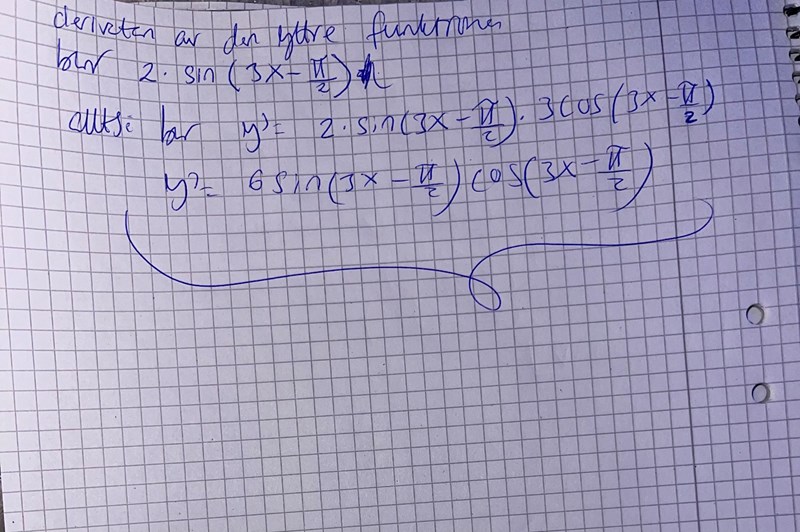 derivatan av den yttre funktionen
blir 2 · sin (3x - π/2)
alltså blir y' = 2 · sin(3x - π/2) · 3cos(3x - π/2)
y' = 6 sin(3x - π/2) cos(3x - π/2)